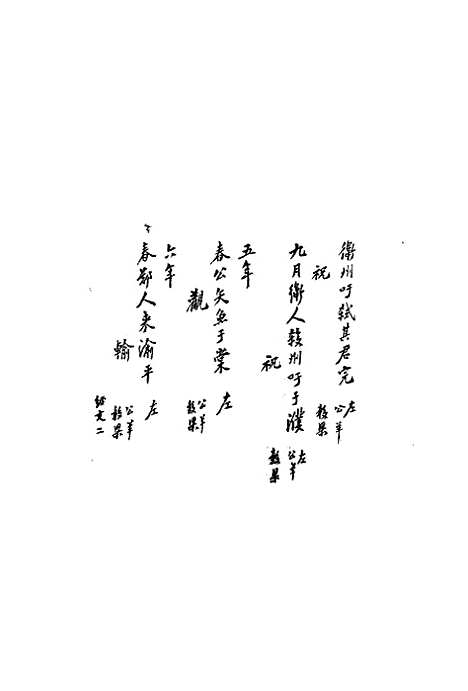 衛州吁弒其君完 左
祝 公羊 穀梁
九月衛人殺州吁于濮 左
祝 公羊 穀梁
五年
春公矢魚于棠 左
觀 公羊 穀梁
六年
春鄭人來渝平 左
輸 公羊 穀梁
經文二